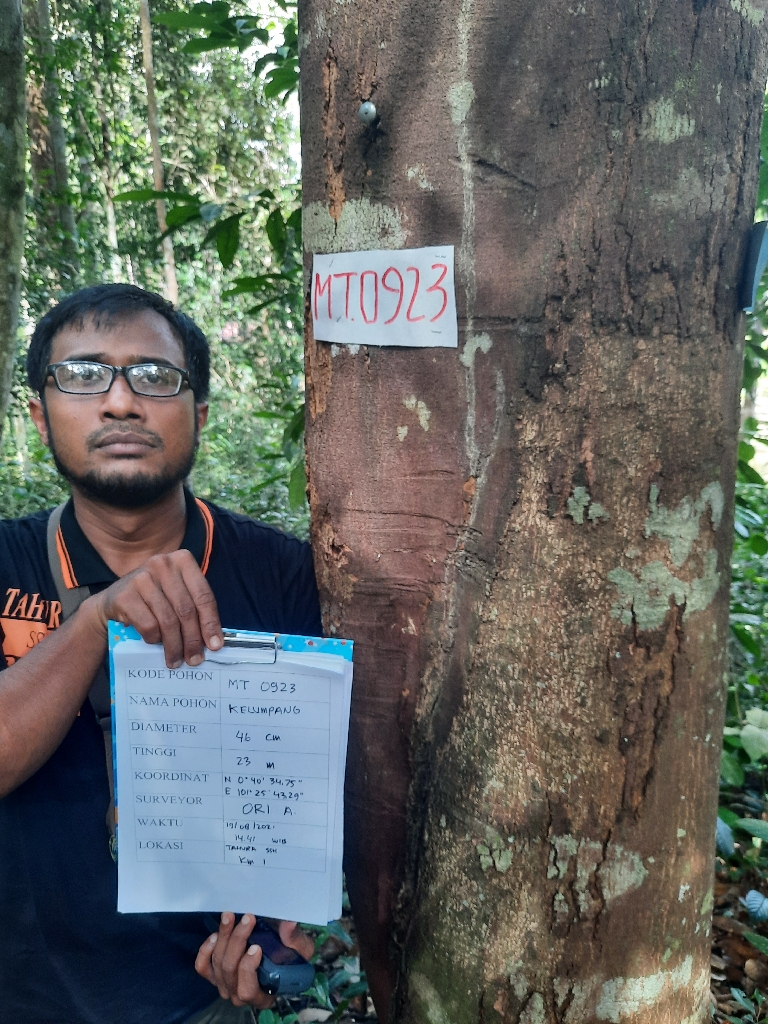 MT.0923
TAHUR
KODE POHON MT 0923
NAMA POHON KELUMPANG
DIAMETER 46 cm
TINGGI 23 m
KOORDINAT N 0° 40' 34.75"
E 101° 25' 43.29"
SURVEYOR ORI A.
WAKTU 17/08/2021
14.41 WIB
LOKASI TAHURA SSH
Km 1